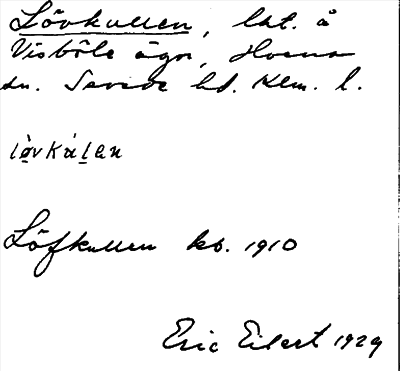 Lövkullen, lät. å
Visböle ägor, Hvena
sn. Sevede hd. Klm. l.
lö̀vkálen
Löfkullen kb. 1910
Eric Eilert 1929